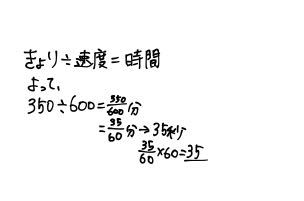 きょり÷速度=時間
よって、
350÷600=350/600分
=35/60分→35秒
35/60×60=35